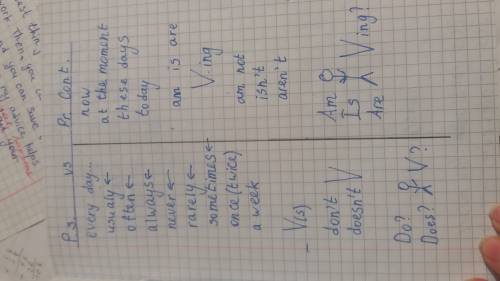 P.S. vs Pr. Cont.
every day...
usualy ←
often ←
always ←
never ←
rarely ←
sometimes ←
once (twice)
a week
– V(s)
don't V
doesn't
Do? V?
Does?
now
at the moment
these days
today
am is are
Ving
am not
isn't
aren't
Am Ving?
Is
Are